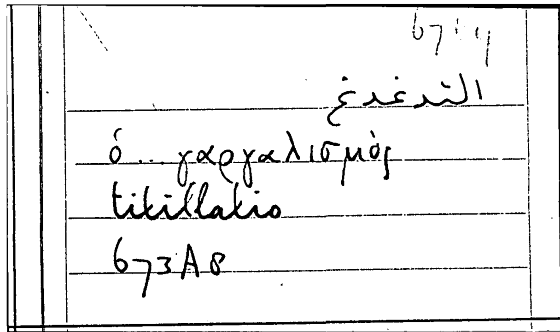 التدغدغ
ὁ... γαργαλισμὸς
titillatio
673A8